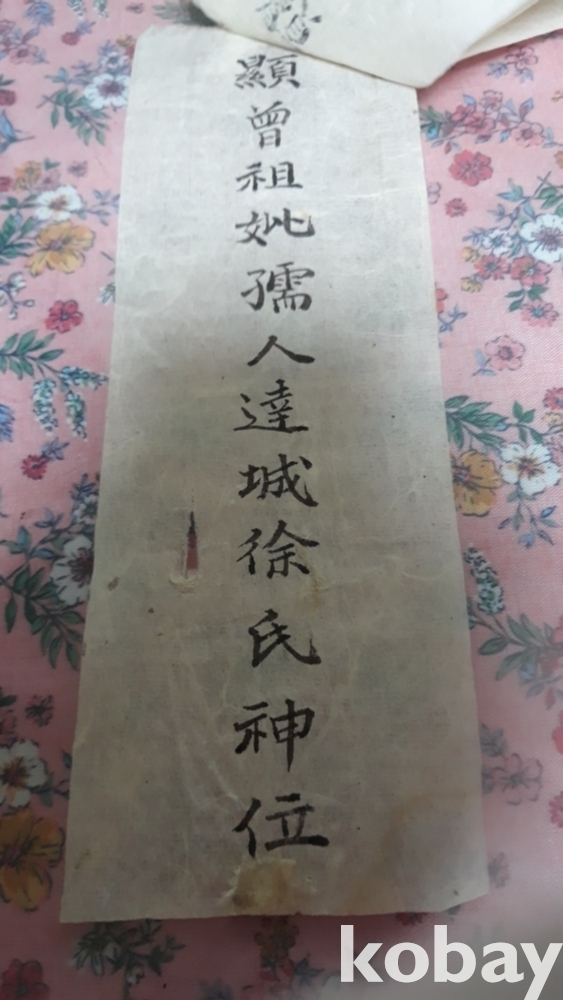 顯曾祖妣孺人達城徐氏神位
kobay